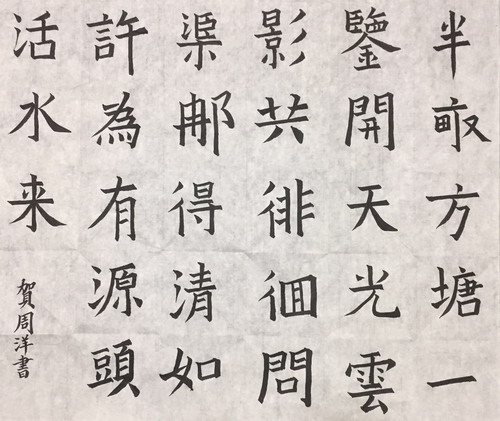 半畝方塘一
鑒開天光雲
影共徘徊問
渠那得清如
許為有源頭
活水来
賀周洋書